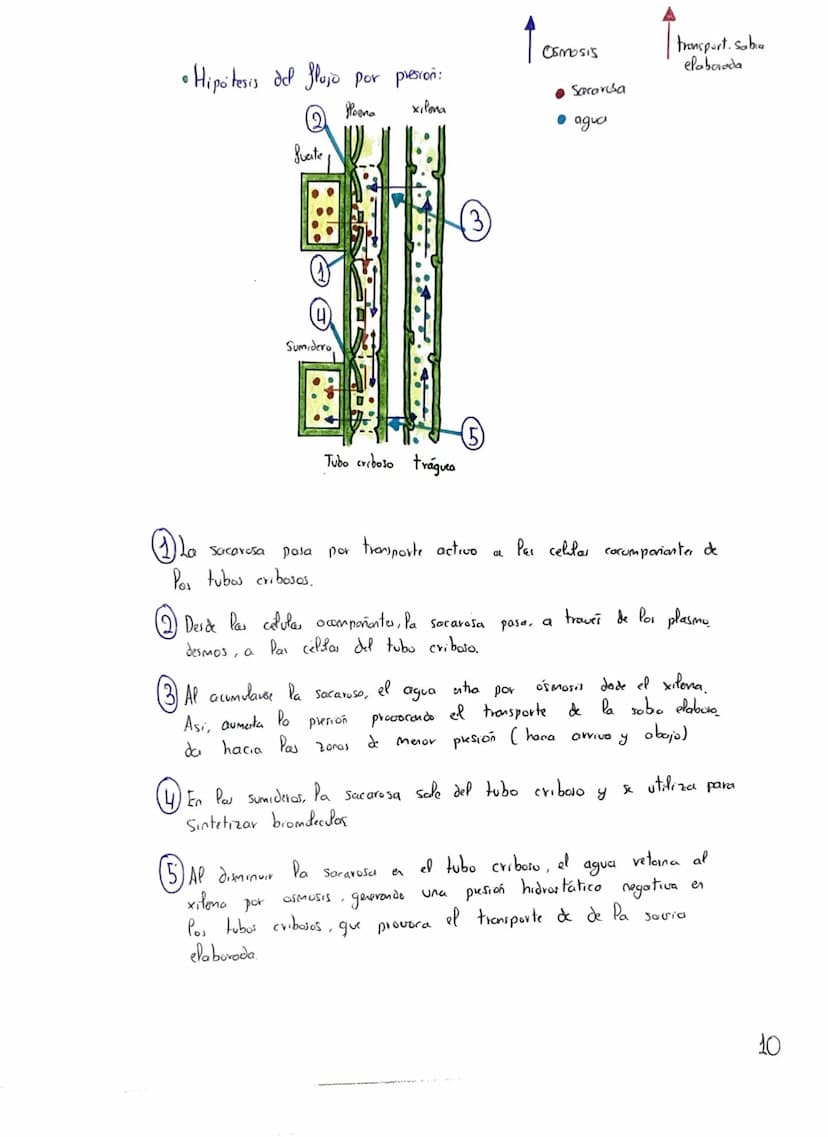 osmosis
transport. sabia
elaborada
• Hipótesis del flujo por presión:
sacarosa
agua
2
floema
xilema
fuente
3
1
4
Sumidero
5
Tubo criboso
tráquea
1 La sacarosa pasa por transporte activo a las células acompañantes de
los tubos cribosos.
2 Desde las células acompañantes, la sacarosa pasa, a través de los plasmo
desmos, a las células del tubo criboso.
3 Al acumularse la sacarosa, el agua entra por ósmosis desde el xilema.
Así, aumenta la presión provocando el transporte de la saba elabora
da hacia las zonas de menor presión (hacia arriva y abajo)
4 En los sumideros, la sacarosa sale del tubo criboso y se utiliza para
sintetizar biomoléculas
5 Al disminuir la sacarosa en el tubo criboso, el agua retorna al
xilema por osmosis, generando una presión hidrostática negativa en
los tubos cribosos, que provoca el transporte de de la savia
elaborada.
10